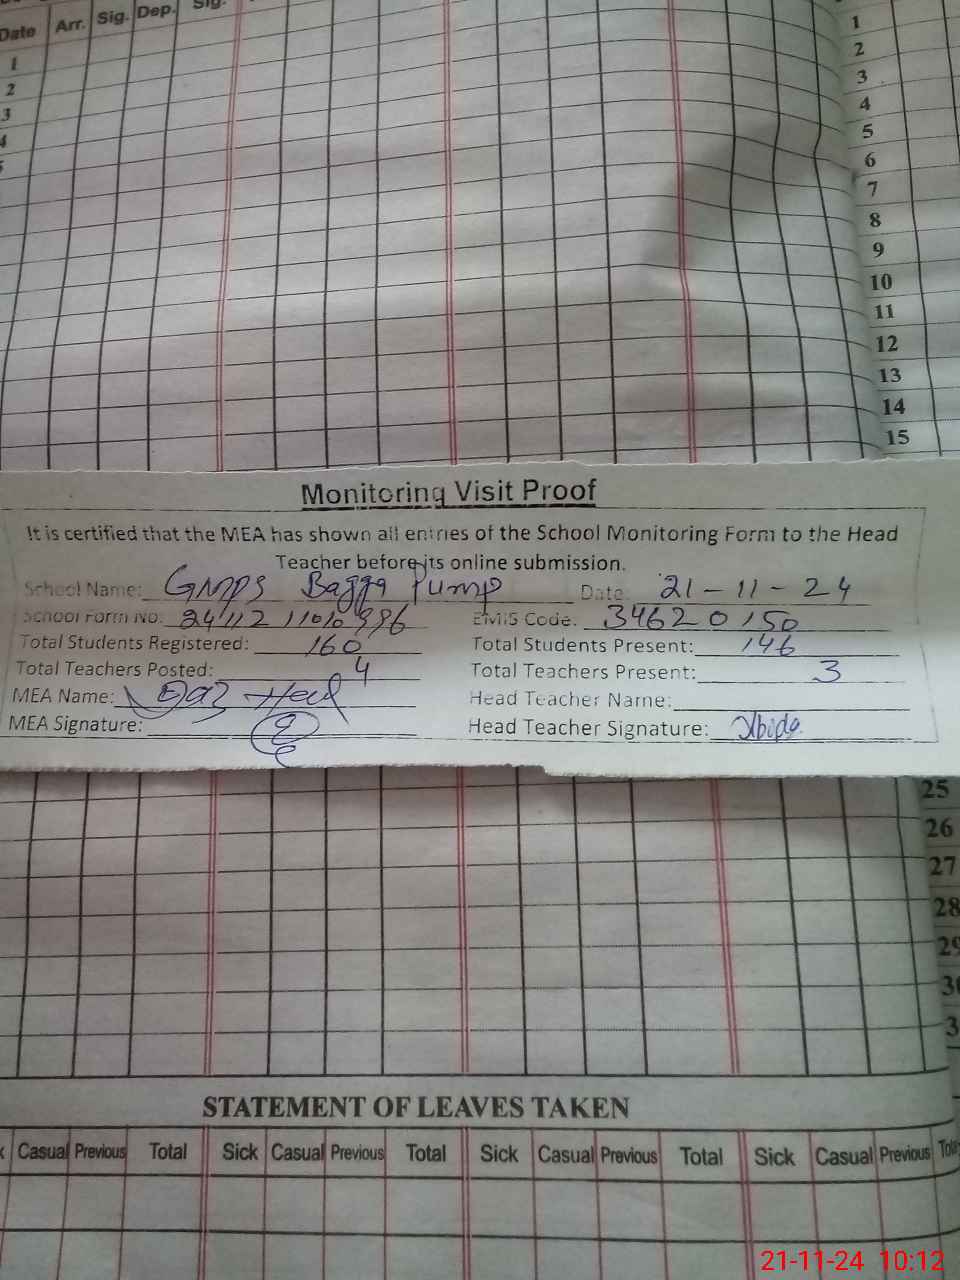 Date Arr. Sig. Dep. Sig.
1
2
3
4
5
1
2
3
4
5
6
7
8
9
10
11
12
13
14
15
Monitoring Visit Proof
It is certified that the MEA has shown all entries of the School Monitoring Form to the Head
Teacher before its online submission.
School Name: GMPS Bagga Pump Date: 21-11-24
School Form No: EMIS Code: 34620150
Total Students Registered: 160 Total Students Present: 146
Total Teachers Posted: 4 Total Teachers Present: 3
MEA Name: Head Teacher Name:
MEA Signature: Head Teacher Signature: Abida
25
26
27
28
29
30
3
STATEMENT OF LEAVES TAKEN
Casual Previous Total Sick Casual Previous Total Sick Casual Previous Total Sick Casual Previous Total
21-11-24 10:12